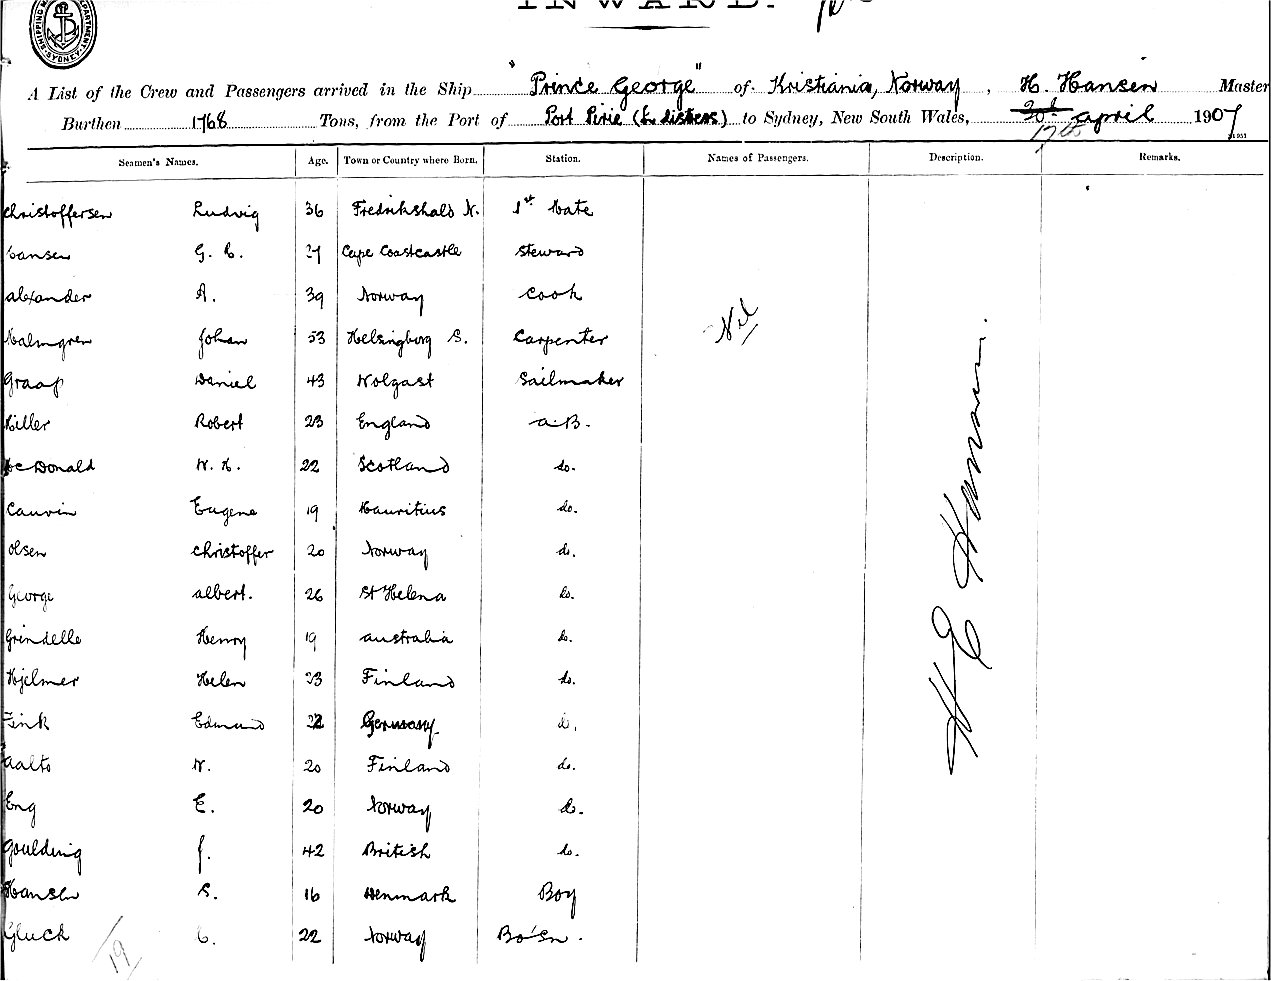 INWARD.
SHIPPING DEPARTMENT SYDNEY
A List of the Crew and Passengers arrived in the Ship "Prince George" of Kristiania, Norway, H. Hansen Master
Burthen 1768 Tons, from the Port of Port Pirie (In distress) to Sydney, New South Wales, 20th 17th April 1907
Seamen's Names. Age. Town or Country where Born. Station. Names of Passengers. Description. Remarks.
Christoffersen Ludvig 36 Fredrikshald N. 1st Mate
Hansen G. C. 27 Cape Coastcastle Steward
Alexander A. 39 Norway Cook
Malmgren Johan 53 Helsingborg S. Carpenter
Nil
Graap Daniel 43 Wolgast Sailmaker
Miller Robert 23 England A.B.
McDonald 22 Scotland do.
Cauvin Eugene 19 Mauritius do.
Olsen Christoffer 20 Norway do.
George Albert. 26 St Helena do.
Grindelle Henry 19 Australia do.
Hjelmer Helen 23 Finland do.
Fink Edmund 22 Germany do.
Aalto W. 20 Finland do.
Eng E. 20 Norway do.
Goulding J. 42 British do.
Hansen S. 16 Denmark Boy
Gluck C. 22 Norway Bo'sn.
19
H E Hansen.